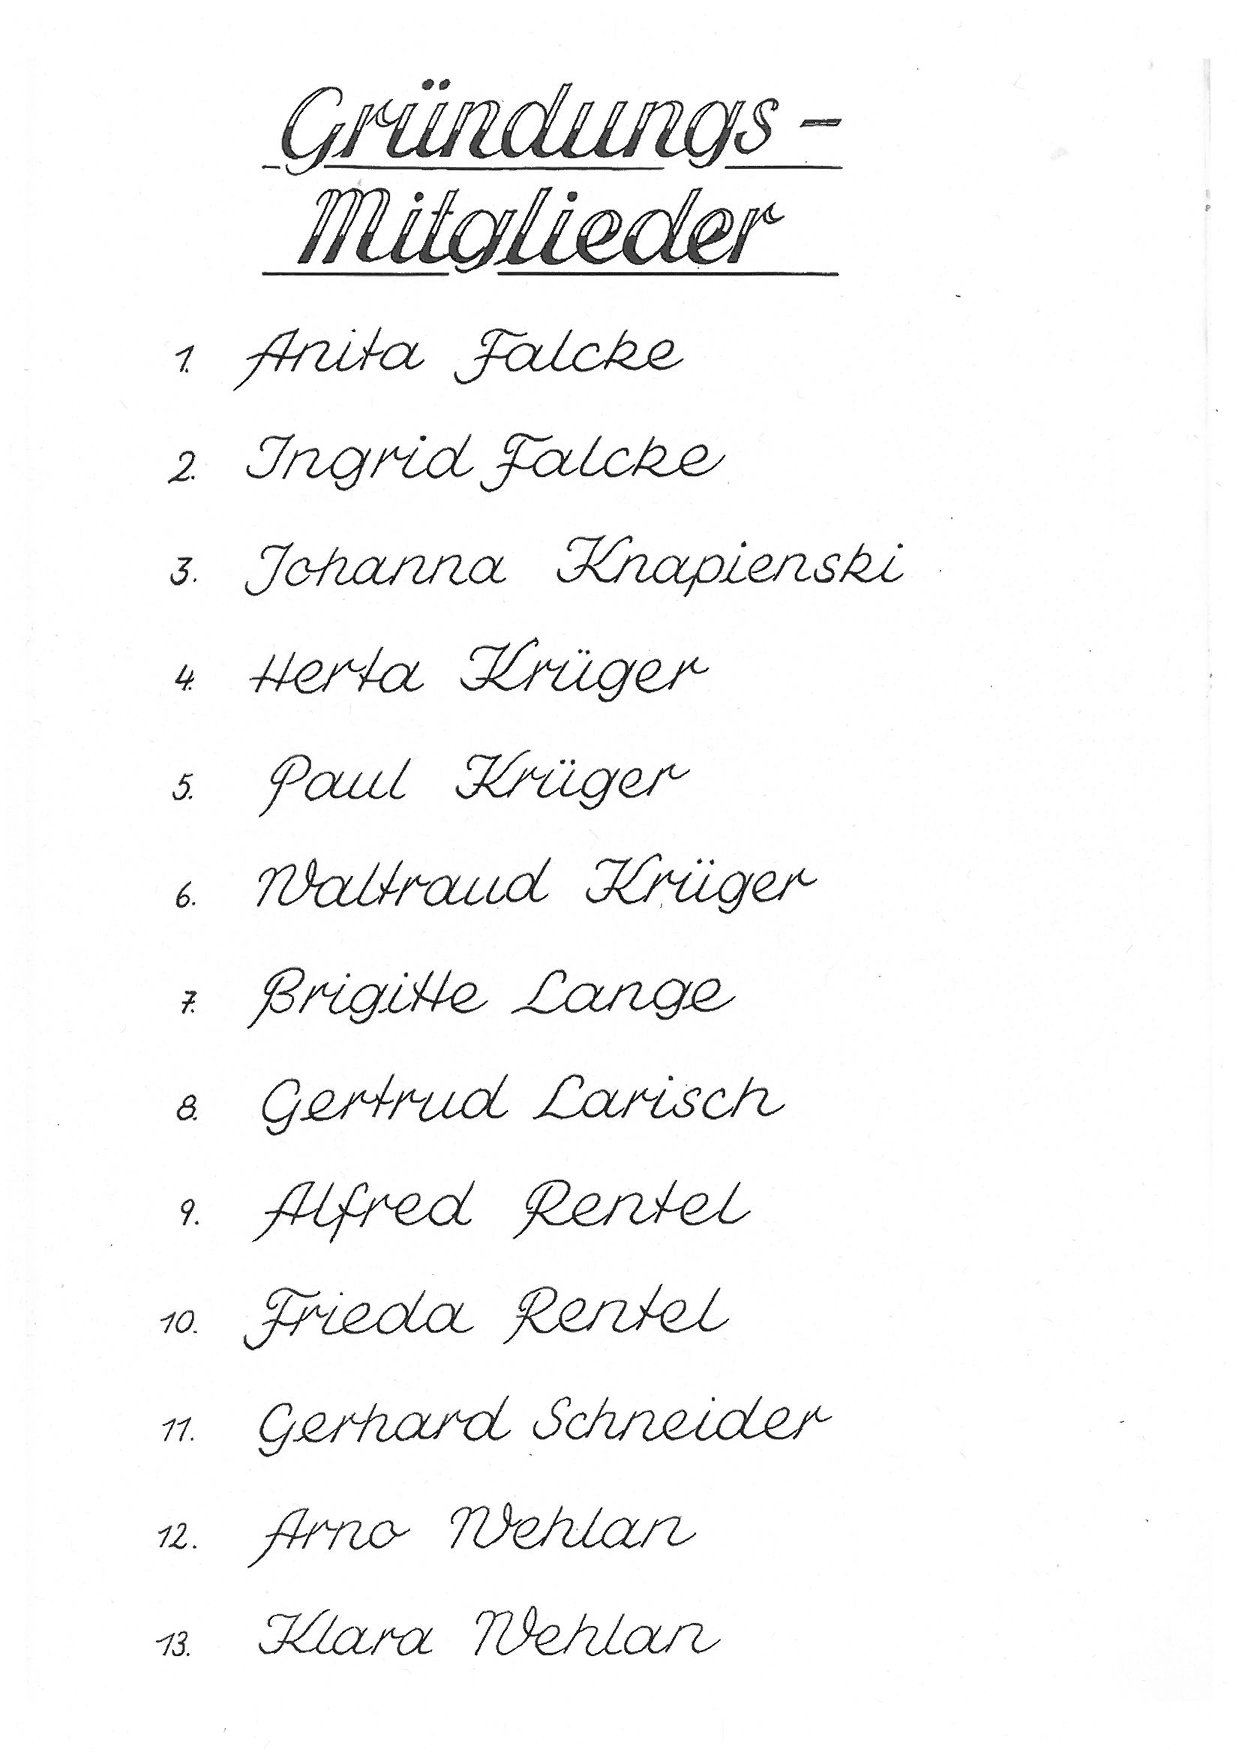 Gründungs-
Mitglieder
1. Anita Falcke
2. Ingrid Falcke
3. Johanna Knapienski
4. Herta Krüger
5. Paul Krüger
6. Waltraud Krüger
7. Brigitte Lange
8. Gertrud Larisch
9. Alfred Rentel
10. Frieda Rentel
11. Gerhard Schneider
12. Arno Wehlan
13. Klara Wehlan